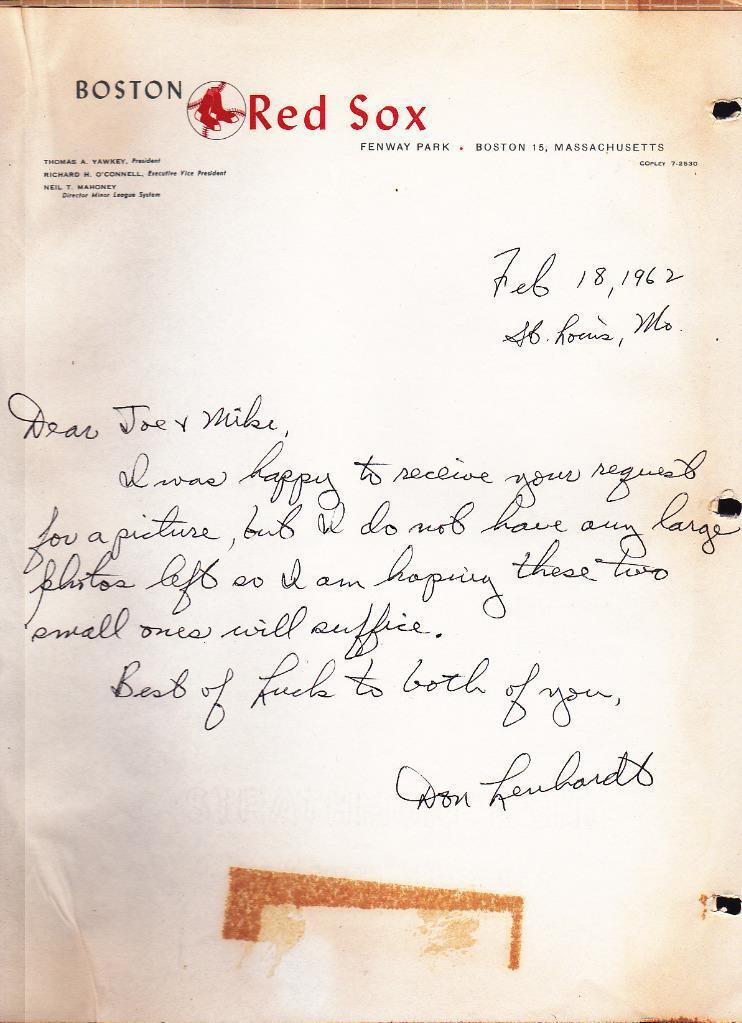 BOSTON Red Sox
FENWAY PARK • BOSTON 15, MASSACHUSETTS
COPLEY 7-2530
THOMAS A. YAWKEY, President
RICHARD H. O'CONNELL, Executive Vice President
NEIL T. MAHONEY
Director Minor League System
Feb 18, 1962
St. Louis, Mo.
Dear Joe & Mike,
I was happy to receive your request
for a picture, but I do not have any large
photos left so I am hoping these two
small ones will suffice.
Best of Luck to both of you,
Don Lenhardt